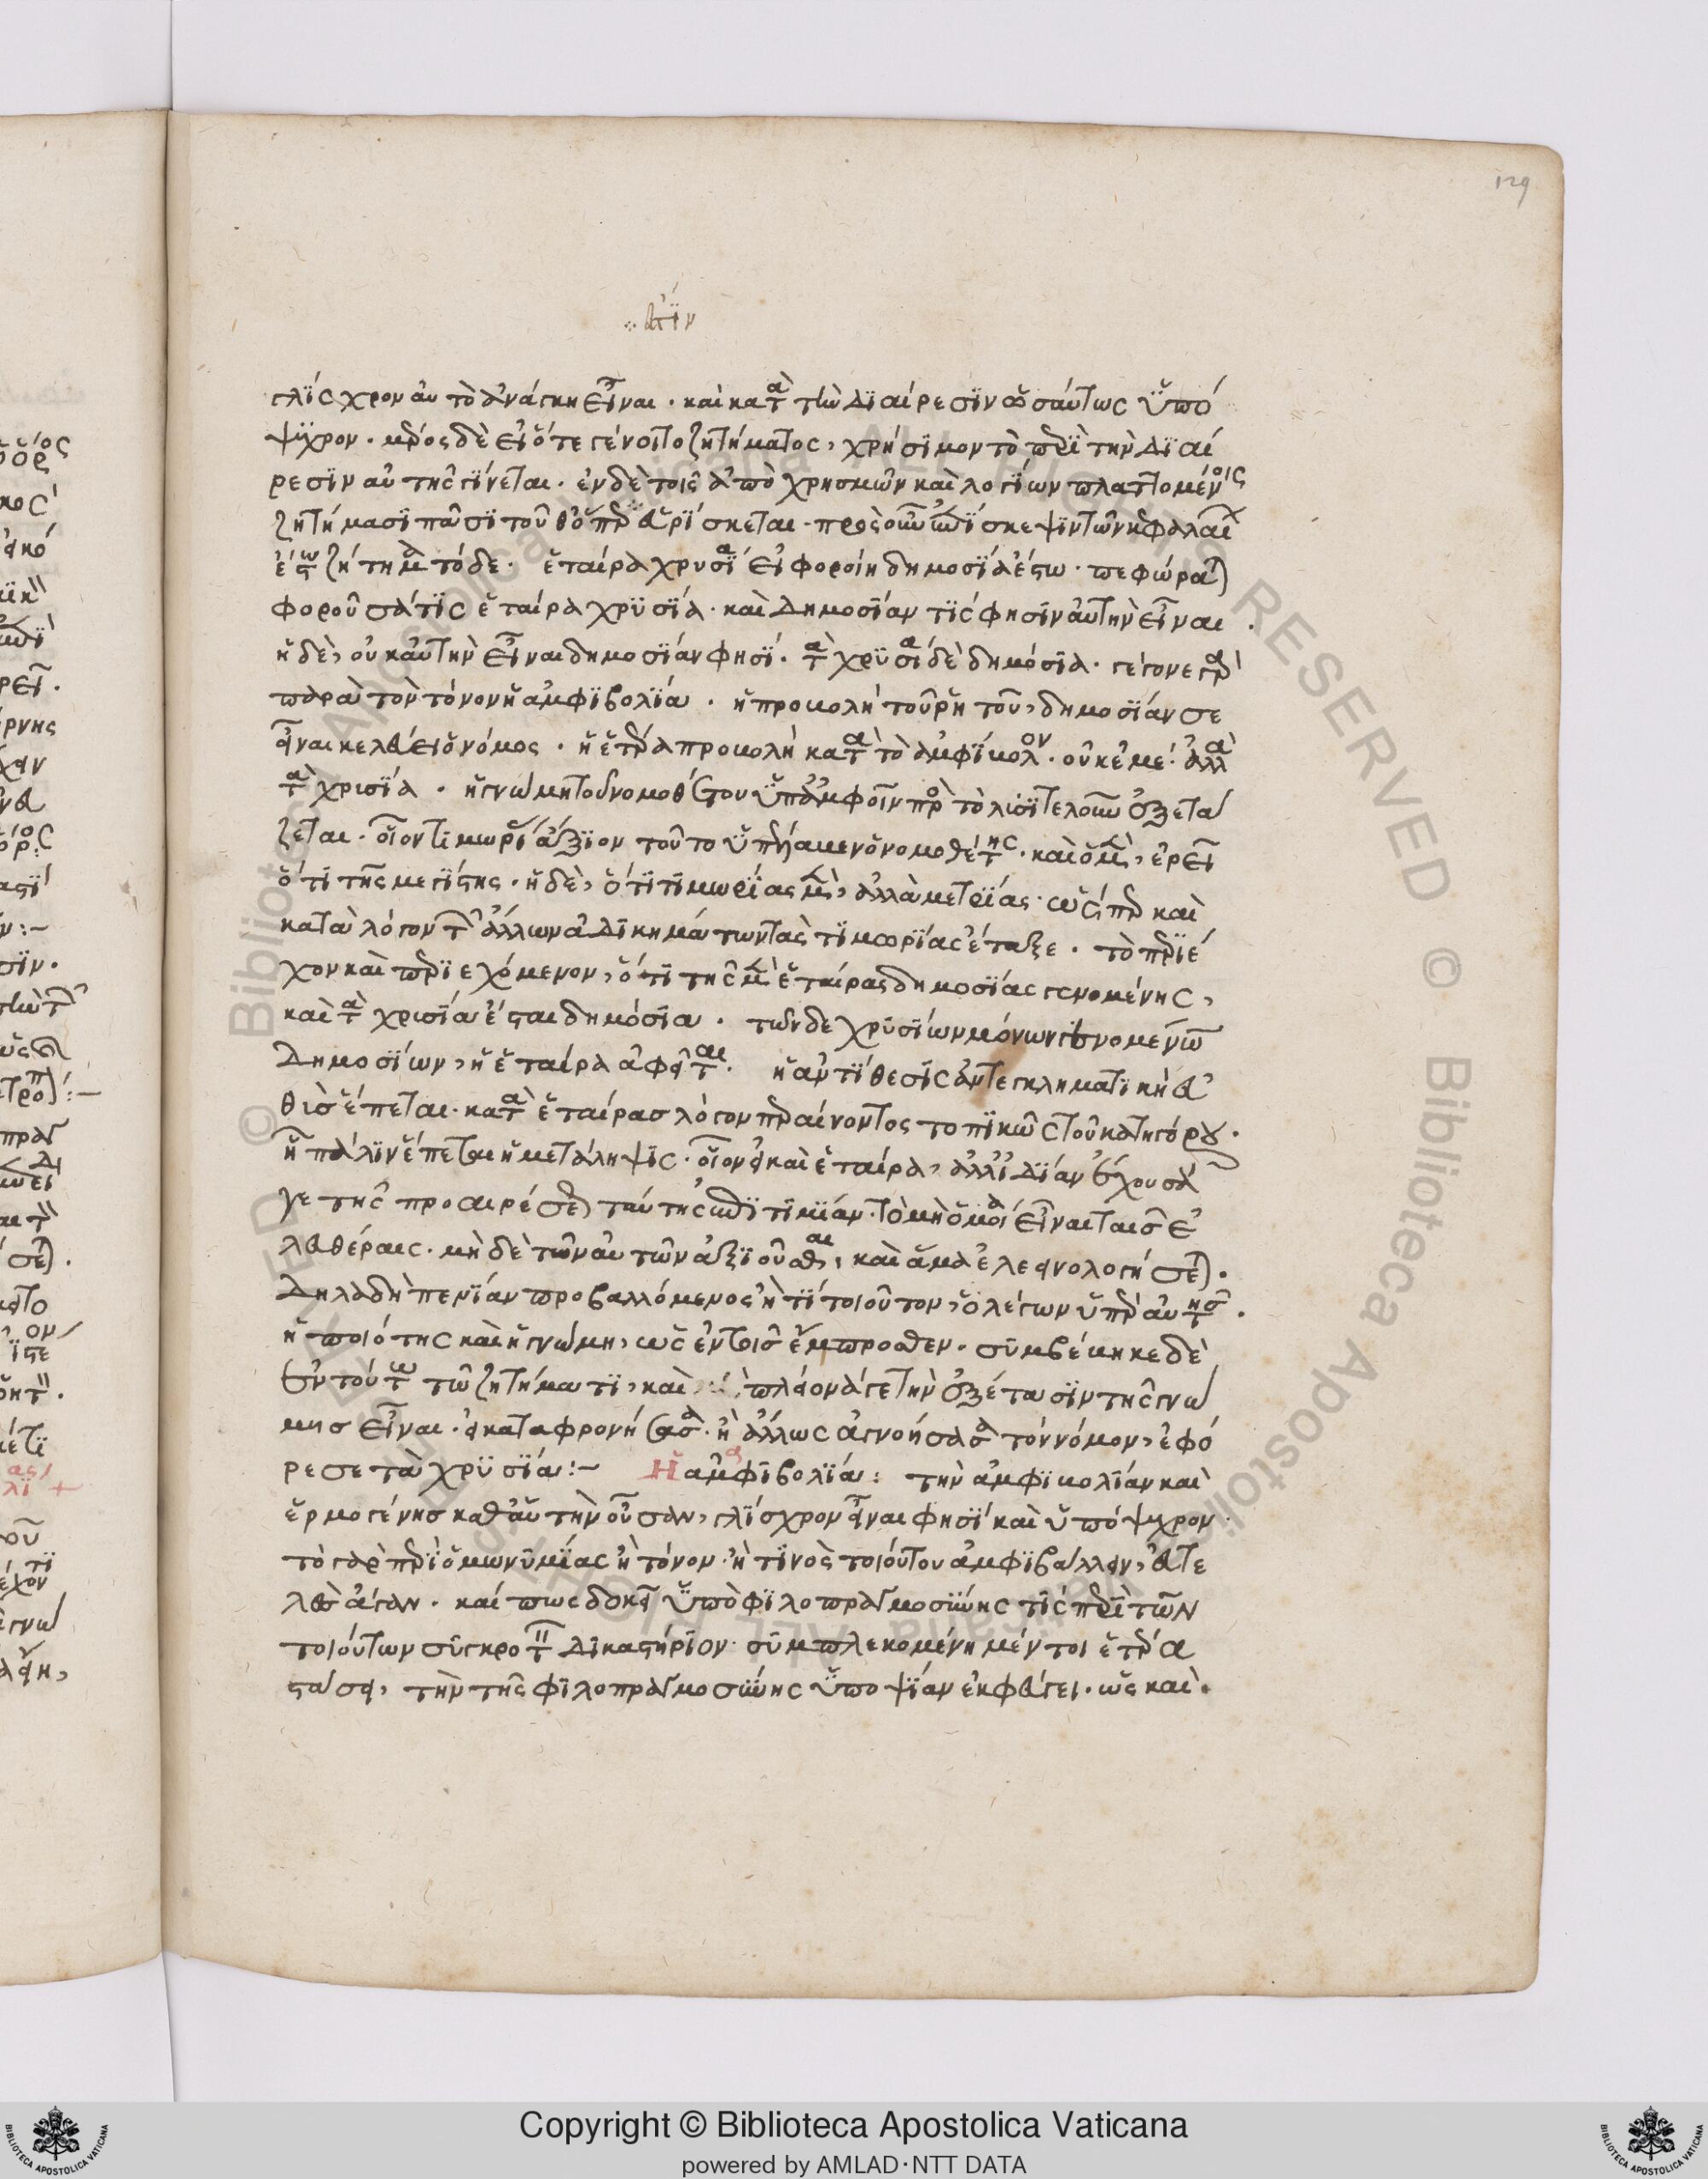 129
γλίσχρον αὐτὸ ἀνάγκη εἶναι · καὶ κατὰ τὴν διαίρεσιν ὡσαύτως ὑπό
ψυχρον · μέρος δὲ εἴ ὅτε γένοιτο ζητήματος, χρήσιμον τὸ περὶ τὴν διαί
ρεσιν αὐτῆς γίνεται · ἐν δὲ τοῖς ἀπὸ χρησμῶν καὶ λογίων πλαττομένοις
ζητήμασι πᾶσι τοῦθ' ὅπερ εὑρίσκεται · πρὸς οὖν ἐπίσκεψιν τῶν κεφαλαί
ἔστω ζήτημα τόδε · ἑταίρα χρυσία εἰ φοροίη δημοσία ἔστω · πεφώραται
φοροῦσά τις ἑταίρα χρυσία · καὶ δημοσίαν τίς φησιν αὐτὴν εἶναι ·
ἡ δὲ, οὐκ αὐτὴν εἶναι δημοσίαν φησί · τὰ χρυσία δὲ δημόσια · γέγονε γὰρ
παρὰ τὸν τόνον ἡ ἀμφιβολία · ἡ προβολὴ τοῦ ῥητοῦ, δημοσίαν σε
εἶναι κελεύει ὁ νόμος · ἡ ἑτέρα προβολὴ κατὰ τὸ ἀμφίβολον · οὐκ ἐμέ · ἀλλὰ
τὰ χρισία · ἡ γνώμη τοῦ νομοθέτου ὑπ' ἀμφοῖν πρὸς τὸ λυσιτελοῦν ἐξετα
ζεται · οἷον τιμωρί ἄξιον τοῦτο ὑπ ὁ νομοθέτης · καὶ ὁ μὲν, ἐρεῖ
ὅτι τῆς μεγίστης · ἡ δὲ, ὅτι τιμωρίας μὲν, ἀλλὰ μετρίας · ὥσπερ καὶ
κατὰ λόγον τῶν ἄλλων ἀδικημάτων τὰς τιμωρίας ἔταξε · τὸ περιέ
χον καὶ περιεχόμενον, ὅτι τῆς μὲν ἑταίρας δημοσίας γενομένης,
καὶ τὰ χρισία ἔσται δημόσια · τῶν δε χρυσίων μόνων γενομένων
δημοσίων, ἡ ἑταίρα ἀφεῖται · ἡ ἀντίθεσις ἀντεγκληματικὴ εὐ
θὺς ἕπεται · κατὰ ἑταίρας λόγον περαίνοντος τοπικῶς τοῦ κατηγόρου ·
ᾗ πάλιν ἕπεται ἡ μετάληψις · οἷον εἰ καὶ ἑταίρα, ἀλλ' ἰδίαν ἔχουσά
γε τῆς προαιρέσεως ταύτης ἐπιτιμίαν · τὸ μὴ ὁμοία εἶναι ταῖς ἐ
λευθέραις · μηδὲ τῶν αὐτῶν ἀξιοῦσθαι, καὶ ἅμα ἐλεεινολογήσεται ·
δηλαδὴ πενίαν προβαλλόμενος ἤ τι τοιοῦτον, ὁ λέγων ὑπὲρ αὐτῆς ·
ἡ ποιότης καὶ ἡ γνώμη, ὡς ἐν τοῖς ἔμπροσθεν · συμβέβηκε δὲ
ἐν τούτω τῶ ζητήματι, καὶ πλείονά γε τὴν ἐξέτασιν τῆς γνώ
μης εἶναι · εἰ καταφρονήσασα · ἢ ἄλλως ἀγνοήσασα τὸν νόμον, ἐφό
ρεσε τὰ χρυσία :– Ἡ ἀμφιβολία : τὴν ἀμφιβολίαν καὶ
ἑρμογένης καθ' αὑτὴν οὖσαν, γλίσχρον εἶναι φησί καὶ ὑπόψυχρον ·
τὸ γὰρ περὶ ὁμωνυμίας ἢ τόνον · ἤ τινος τοιούτου ἀμφιβάλλειν, εὐτε
λὲς ἄγαν · καί πως δοκεῖ ὑπὸ φιλοπραγμοσύνης τίς περὶ τῶν
τοιούτων συγκροτ δικαστήριον · συμπλεκομένη μέντοι ἑτέρα
στάσει, τὴν τῆς φιλοπραγμοσύνης ὑποψίαν ἐκφεύγει · ὡς καὶ ·
© Biblioteca Apostolica Vaticana ALL RIGHTS RESERVED
Copyright © Biblioteca Apostolica Vaticana
powered by AMLAD·NTT DATA